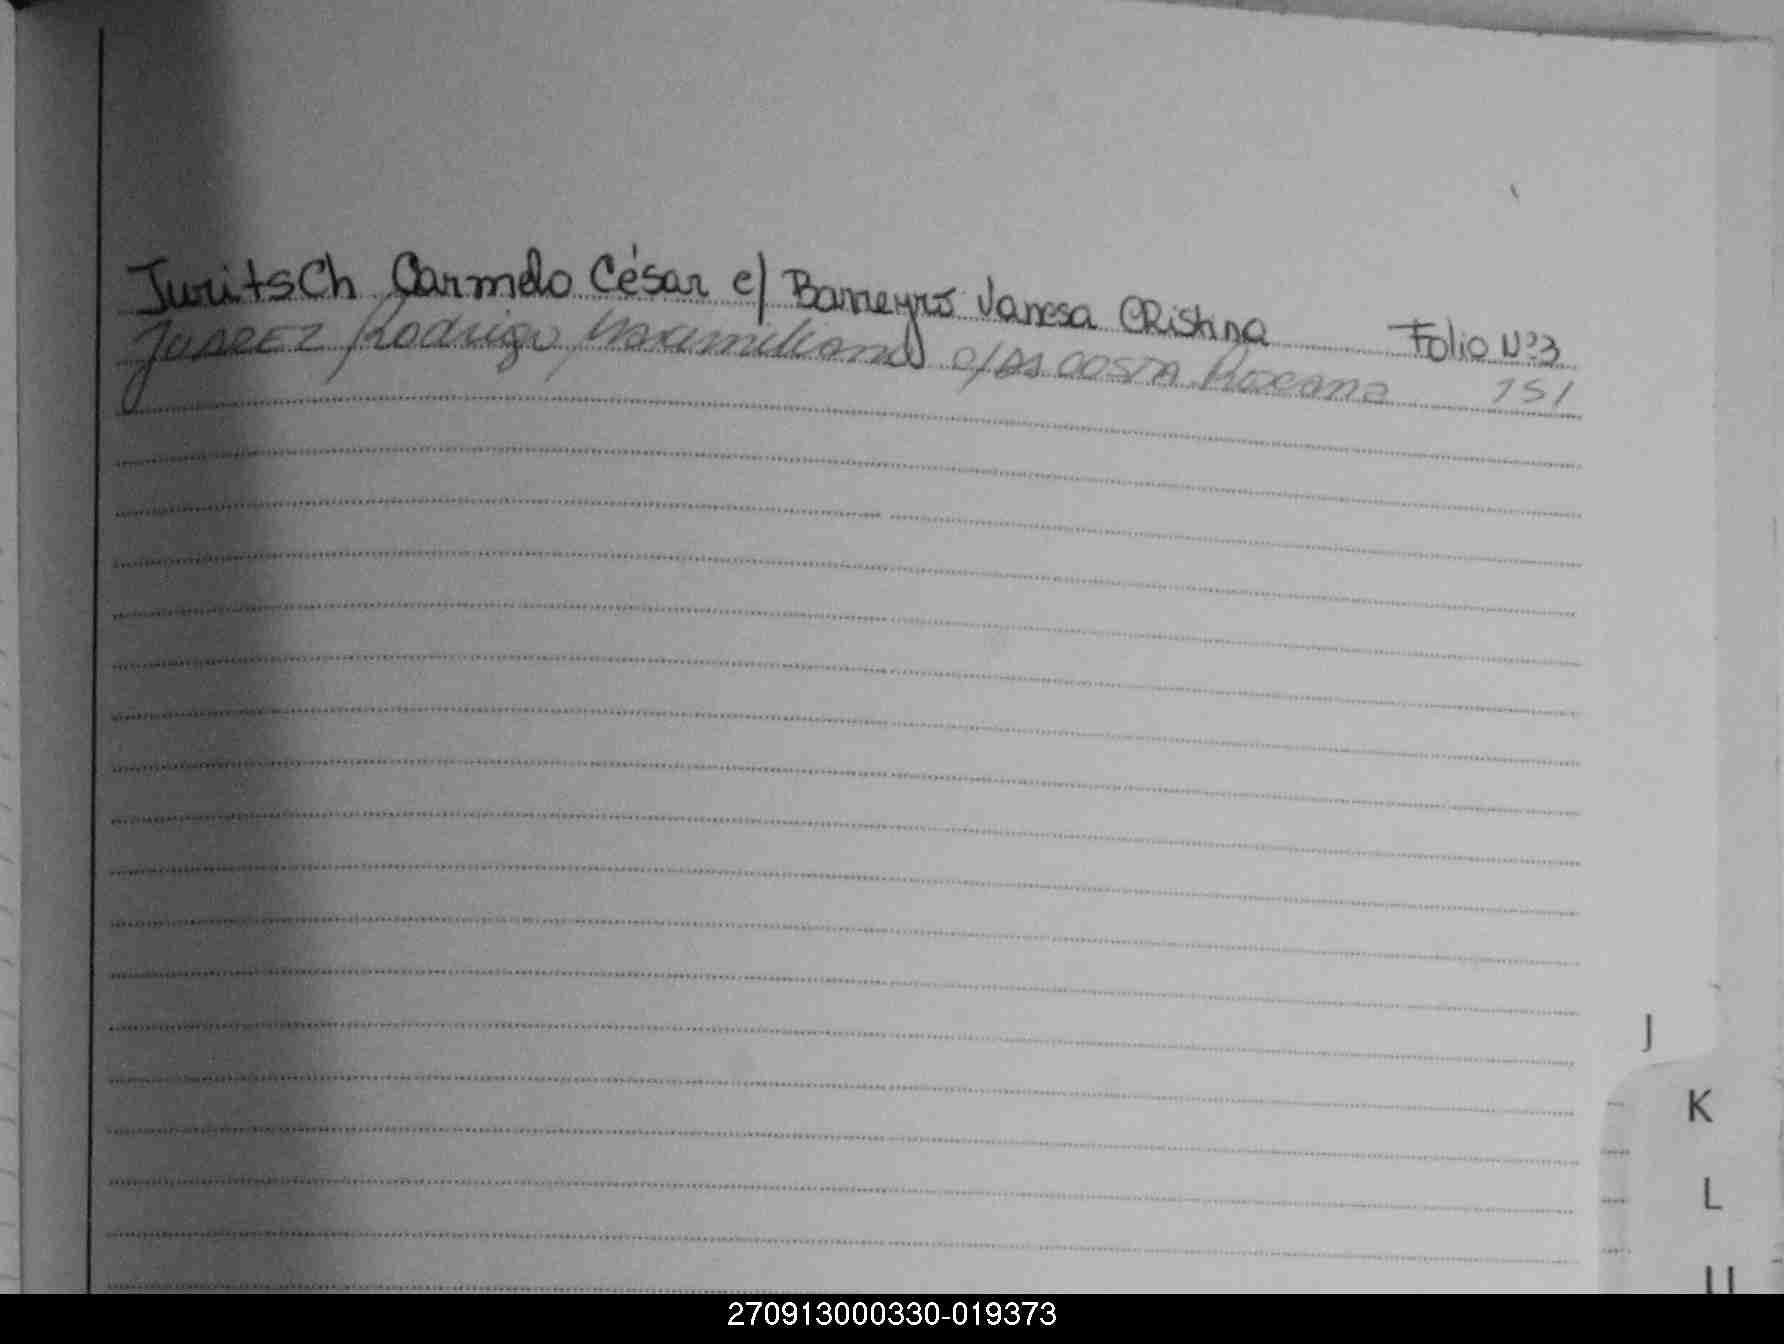 Juritsch Carmelo César c/ Barreyro Vanesa CRistina Folio Nº3
JUAREZ Rodrigo Maximiliano c/DA COSTA Roxana 151
J
K
L
270913000330-019373